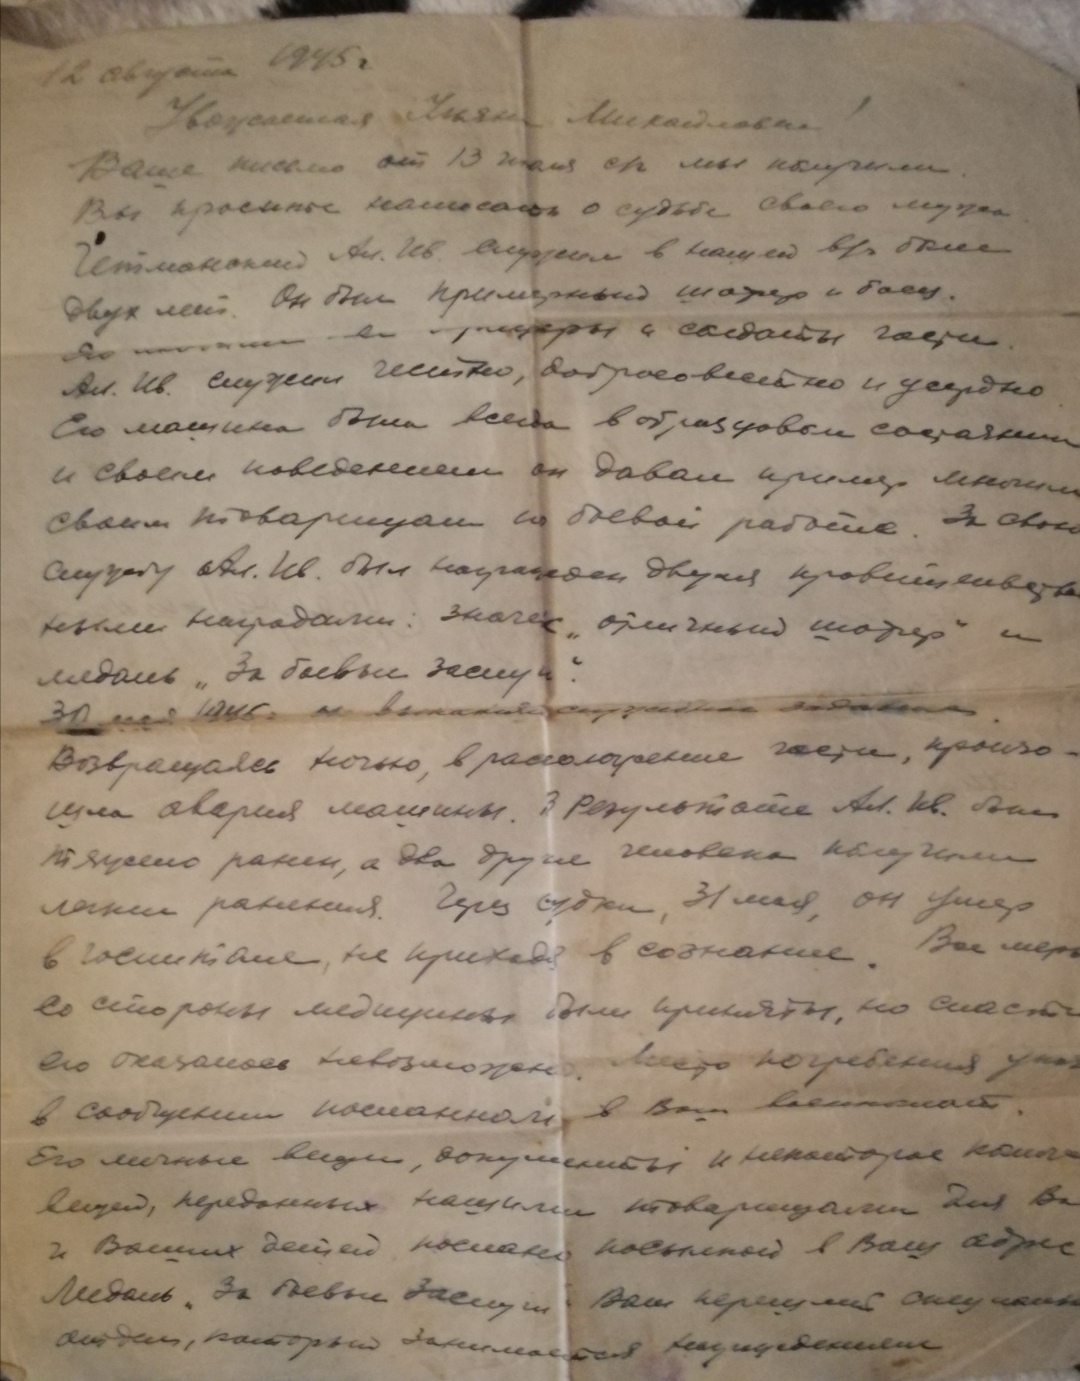 12 августа 1945 г.
Уважаемая Ульяна Михайловна!
Ваше письмо от 13 июля с/г мы получили.
Вы просите написать о судьбе своего мужа.
Гетманский Ал. Ив. служил в нашей в/ч более
двух лет. Он был примерный шофер и боец.
и солдаты части.
Ал. Ив. служил честно, добросовестно и усердно
Его машина была всегда в образцовом состоянии
и своим поведением он давал пример многим
своим товарищам по боевой работе. За свою
службу Ал. Ив. был награжден двумя правительств
ными наградами: значек „отличный шофер" и
медаль „За боевые заслуги".
30 мая 1945 г. он выполнял служебное задание.
Возвращаясь ночью, в расположение части, произо-
шла авария машины. В результате Ал. Ив. был
тяжело ранен, а два других человека получили
легкие ранения. Через сутки, 31 мая, он умер
в госпитале, не приходя в сознание. Все меры
со стороны медицины были приняты, но спасти
его оказалось невозможно. Место погребения
в сообщении посланном в Ваш военкомат.
Его личные вещи, документы и некоторое
вещей, переданных нашими товарищами для Ва
и Ваших детей послано посылкой в Ваш адрес
Медаль „За боевые заслуги" Вам перешлет
отдел, который занимается награждением